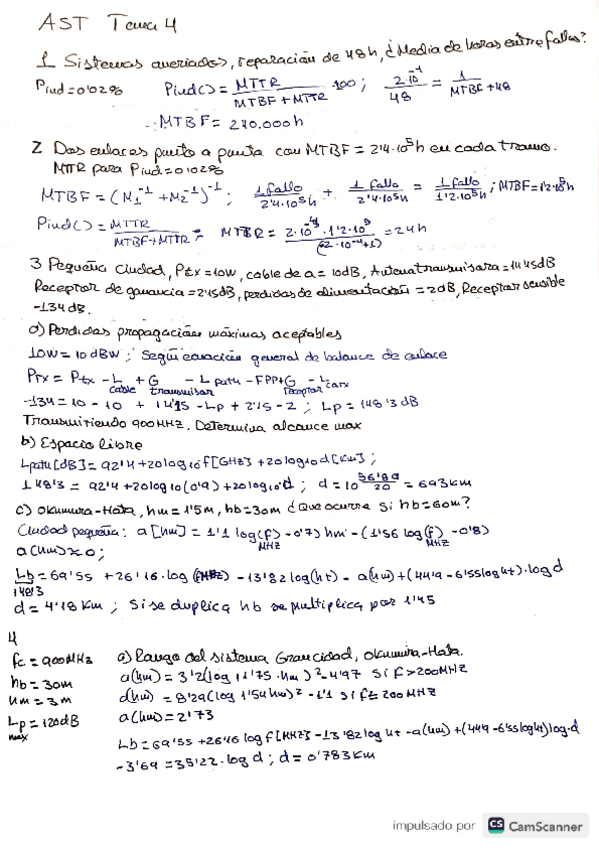 AST Tema 4
1 Sistemas averiados, reparación de 48h, ¿Media de horas entre fallos?
Pind=0'02% Pind() = MTTR / MTBF + MTTR 100; 2·10⁻⁴ / 48 = 1 / MTBF+48
MTBF = 240.000h
2 Dos enlaces punto a punto con MTBF = 2'4·10⁵h en cada tramo.
MTTR para Pind=0'02%
MTBF = (M₁⁻¹ + M₂⁻¹)⁻¹ ; 1 fallo / 2'4·10⁵h + 1 fallo / 2'4·10⁵h = 1 fallo / 1'2·10⁵h ; MTBF=1'2·10⁵h
Pind() = MTTR / MTBF+MTTR ; MTTR = 2·10⁻⁴·1'2·10⁵ / (2·10⁻⁴+1) = 24h
3 Pequeña ciudad, Ptx=10W, cable de a=10dB, Antena transmisora=14'15dB
Receptor de ganancia=2'15dB, perdidas de alimentación=2dB, Receptor sensible
-134dB.
a) Perdidas propagación máximas aceptables
10W=10dBW ; Según ecuación general de balance de enlace
Prx = Ptx - L cable + G transmisor - Lpath - FPP + G receptor - L carx
-134 = 10 - 10 + 14'15 - Lp + 2'15 - 2 ; Lp = 148'3 dB
Transmitiendo 900MHz. Determina alcance max
b) Espacio libre
Lpath[dB] = 92'4 + 20log₁₀f[GHz] + 20log₁₀d[Km] ;
148'3 = 92'4 + 20log10(0'9) + 20log₁₀d ; d = 10^56'89/20 = 693Km
c) Okumura-Hata, hm=1'5m, hb=30m ¿Que ocurre si hb=60m?
Ciudad pequeña: a[hm] = 1'1 log(f) - 0'7) hm - (1'56 log(f) - 0'8)
MHz MHz
a(hm)≈0;
Lb = 69'55 + 26'16·log(fMHz) - 13'82log(ht) - a(hm) + (44'9 - 6'55loght)·logd
148'3
d = 4'18 Km ; Si se duplica hb se multiplica por 1'45
4
fc = 900MHz a) Rango del sistema Gran ciudad, Okumura-Hata.
hb = 30m a(hm) = 3'2(log 11'75·hm)² - 4'97 Si f>200MHz
hm = 3m a(hm) = 8'29(log 1'54hm)² - 1'1 si f≤200MHz
Lp = 120dB a(hm) = 2'73
max
Lb = 69'55 + 26'16 log f[MHz] - 13'82 log ht - a(hm) + (44'9 - 6'55loght)log·d
-3'69 = 35'22·log d ; d = 0'783 Km
impulsado por CS CamScanner